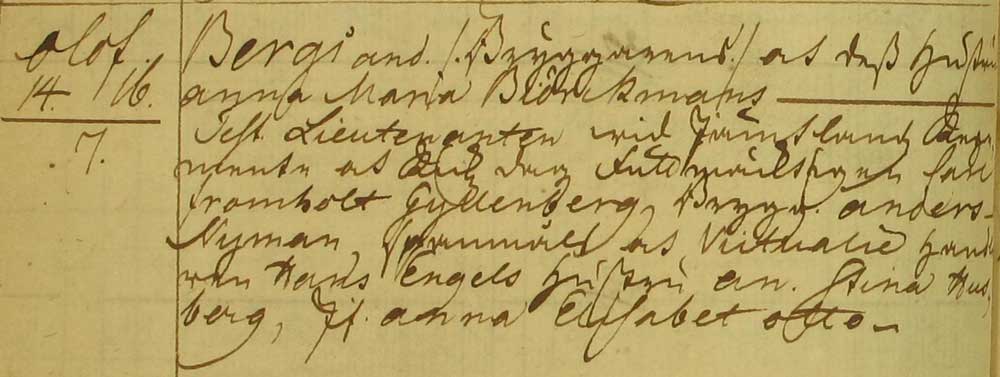 Olof.
14. 16.
7.
Bergs and. /:Bryggarens:/ as deß Hustru
Anna Maria Biörckmans
Test. Lieutenanten wid Jämtlands Rege
mente as Dag Fullmäcktigen Carl
Fromholt Gyllenberg, Brygg. Anders
Nyman, as Victualie Hand
ren Hans Engels Hustru An. Stina Hus
berg, Jf. Anna Elisabet Otto